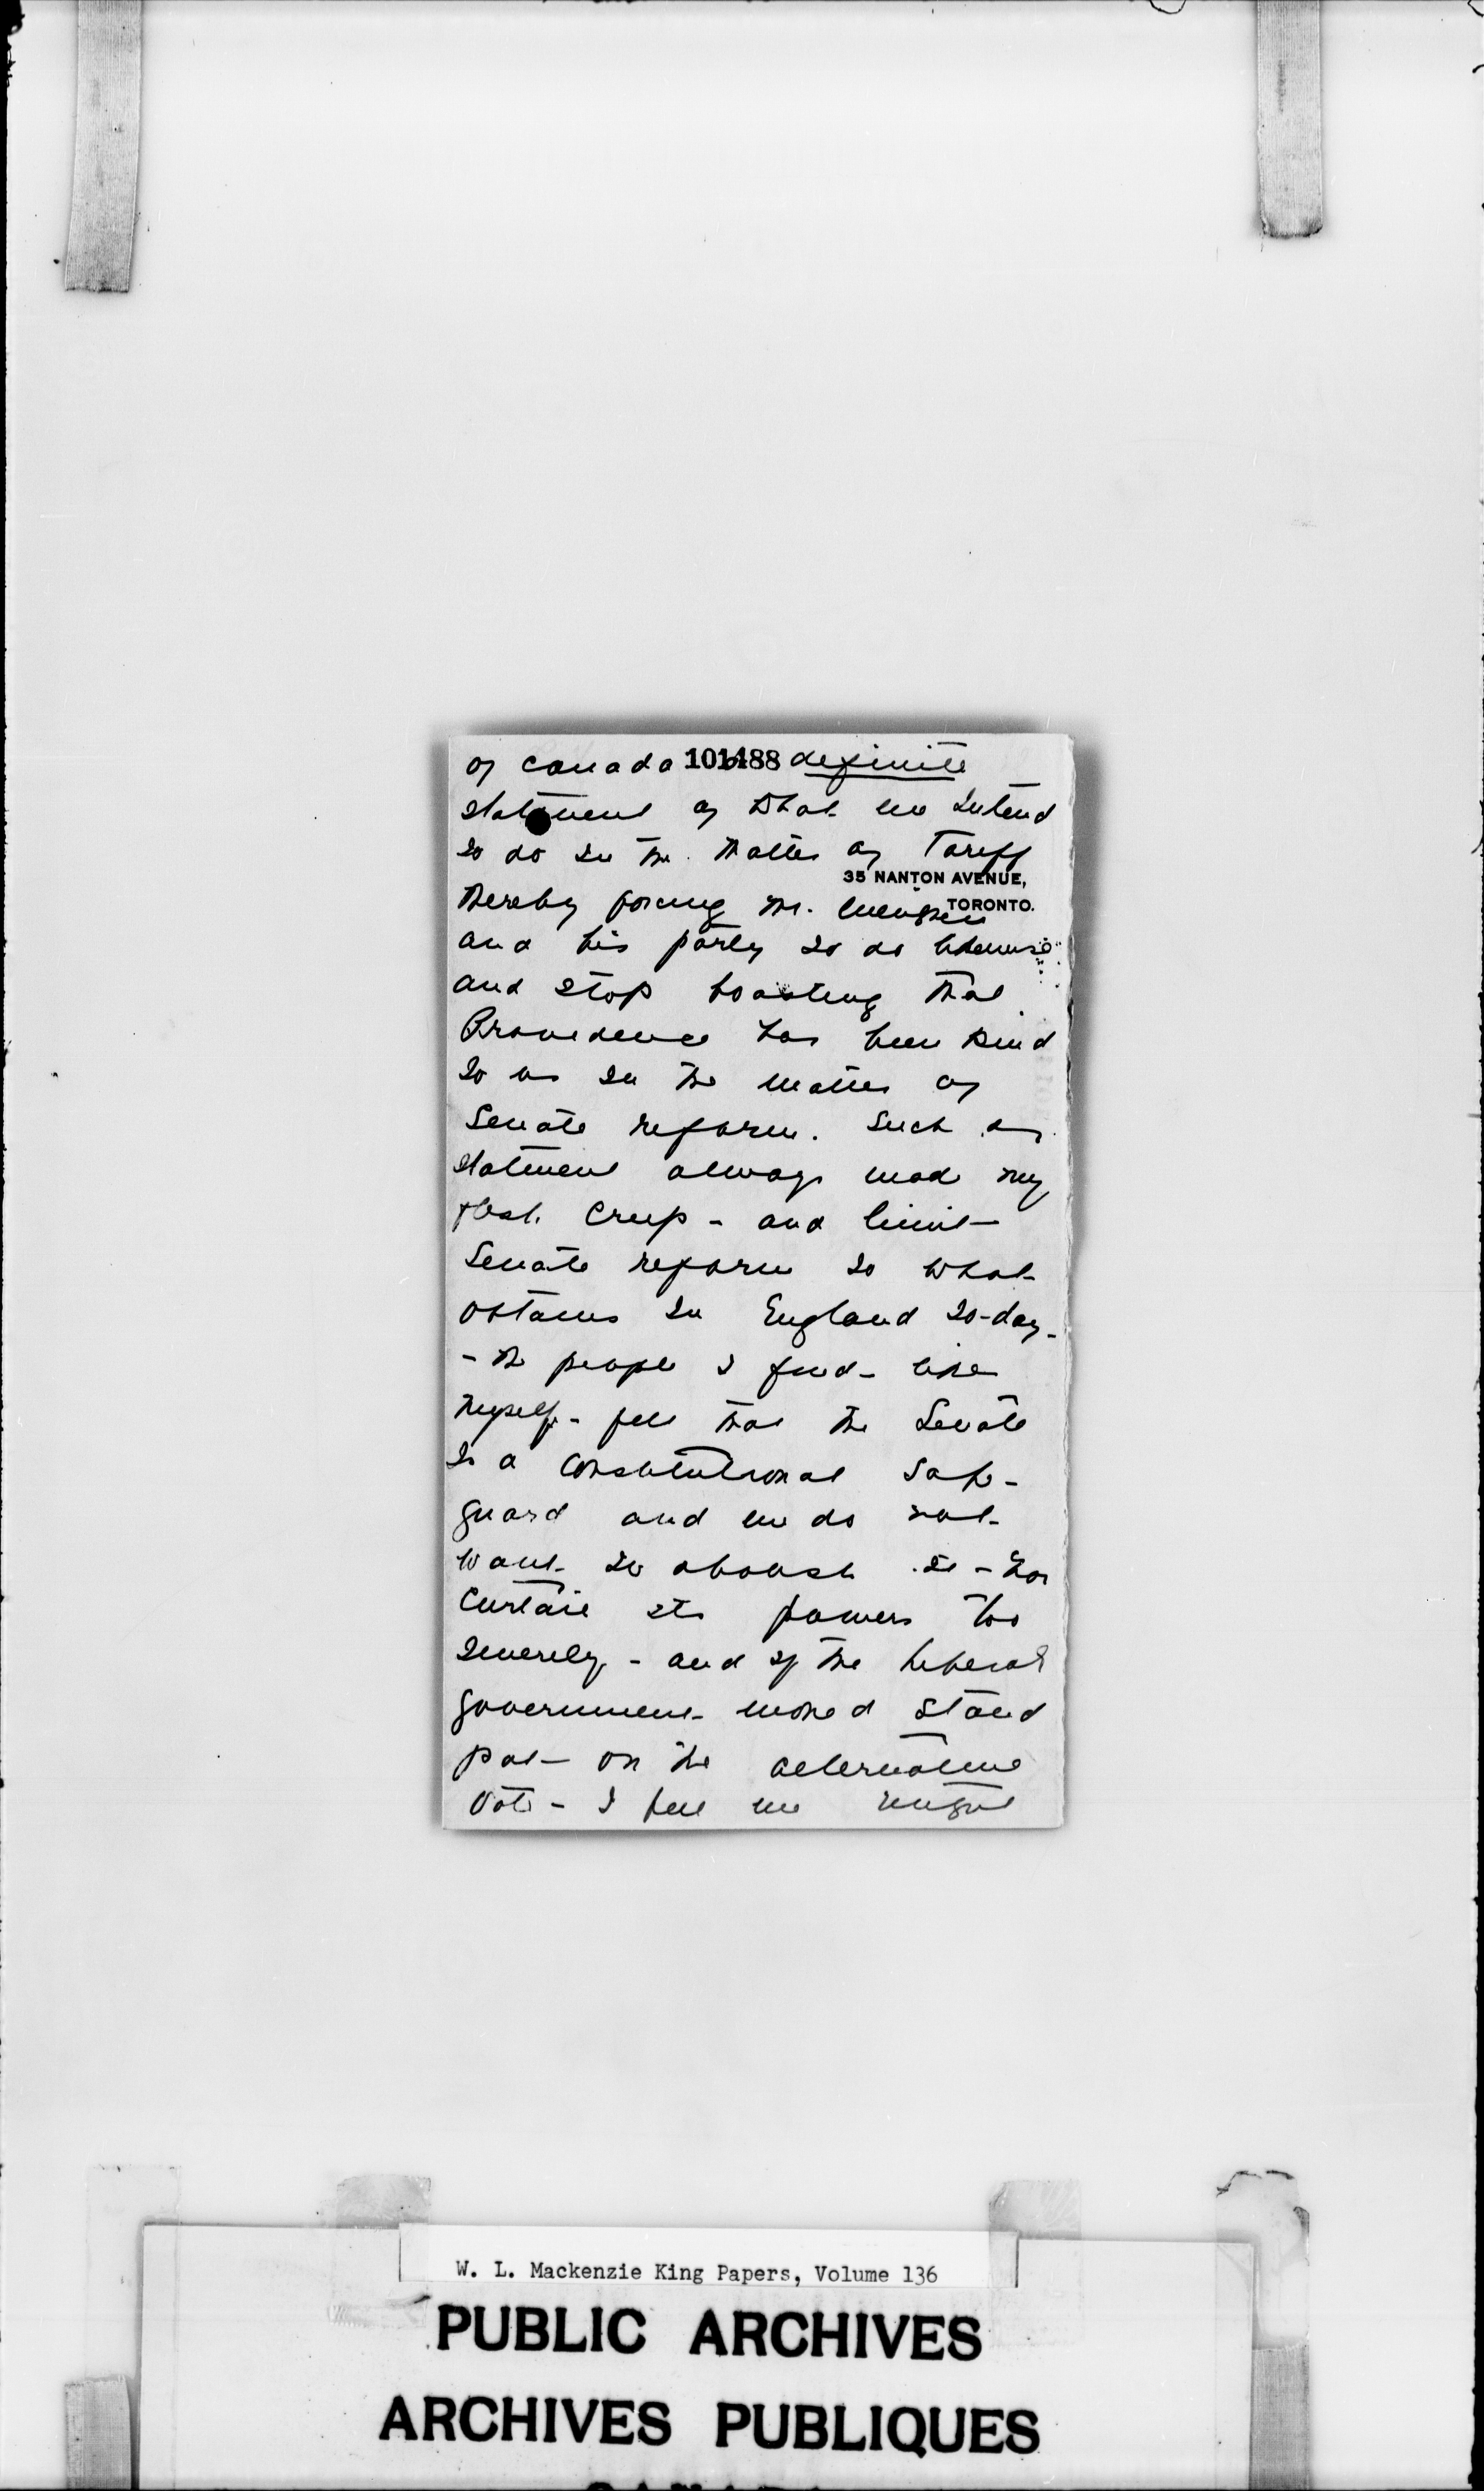 of Canada 101488 definite
statement of what we intend
to do in the matter of Tariff
35 NANTON AVENUE,
TORONTO.
thereby forcing Mr. Meighen
and his party to do likewise
and stop boasting that
Providence has been kind
to us in the matter of
Senate reform. Such a
statement always made my
flesh creep - and limit
Senate reform to what
obtains in England to-day -
- the people I find - like
myself - feel that the Senate
is a constitutional safe-
guard and we do not
want to abolish it - nor
curtail its powers too
severely - and if the Liberal
government would stand
pat - on the alternative
vote - I feel we might
W. L. Mackenzie King Papers, Volume 136
PUBLIC ARCHIVES
ARCHIVES PUBLIQUES